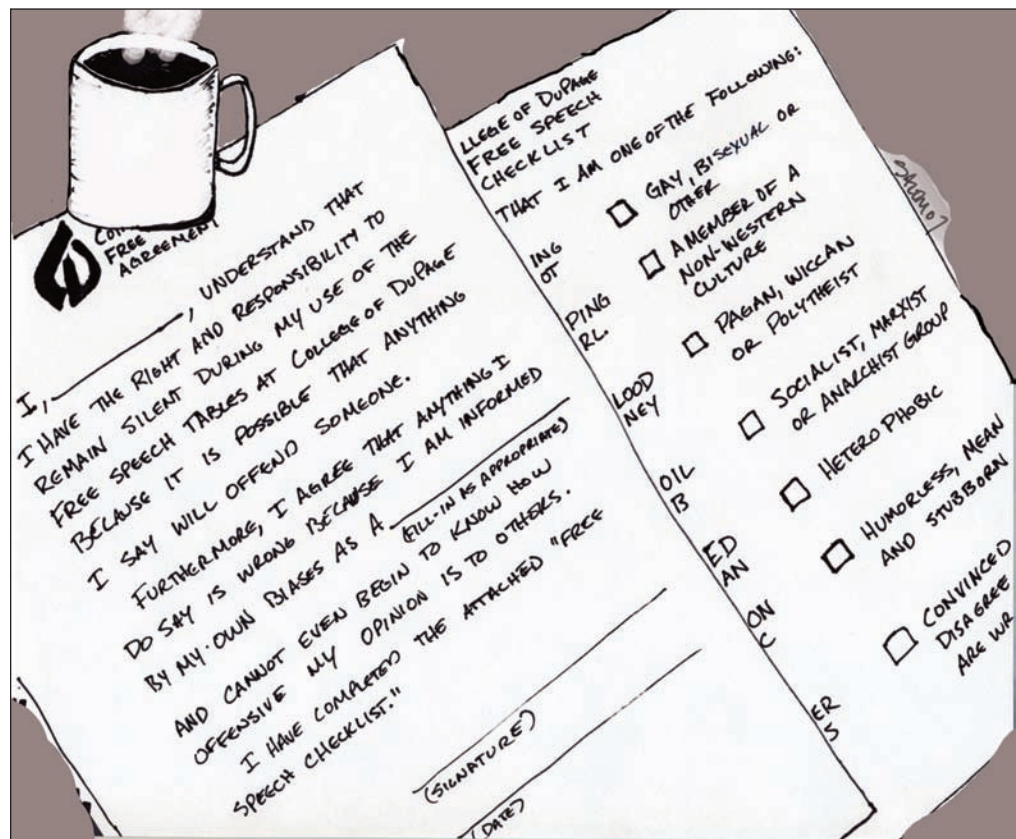 FREE
AGREEMENT
I, ________, UNDERSTAND THAT
I HAVE THE RIGHT AND RESPONSIBILITY TO
REMAIN SILENT DURING MY USE OF THE
FREE SPEECH TABLES AT COLLEGE OF DUPAGE
BECAUSE IT IS POSSIBLE THAT ANYTHING
I SAY WILL OFFEND SOMEONE.
FURTHERMORE, I AGREE THAT ANYTHING I
DO SAY IS WRONG BECAUSE I AM INFORMED
BY MY OWN BIASES AS A ________
(FILL-IN AS APPROPRIATE)
AND CANNOT EVEN BEGIN TO KNOW HOW
OFFENSIVE MY OPINION IS TO OTHERS.
I HAVE COMPLETED THE ATTACHED "FREE
SPEECH CHECKLIST."
(SIGNATURE)
(DATE)
LLEGE OF DUPAGE
FREE SPEECH
CHECKLIST
THAT I AM ONE OF THE FOLLOWING:
GAY, BISEXUAL OR
OTHER
A MEMBER OF A
NON-WESTERN
CULTURE
PAGAN, WICCAN
OR POLYTHEIST
SOCIALIST, MARXIST
OR ANARCHIST GROUP
HETERO PHOBIC
HUMORLESS, MEAN
AND STUBBORN
CONVINCED
DISAGREE
ARE WR
ING
OT
PING
RL
LOOD
NEY
OIL
B
ED
AN
ON
C
ER
S